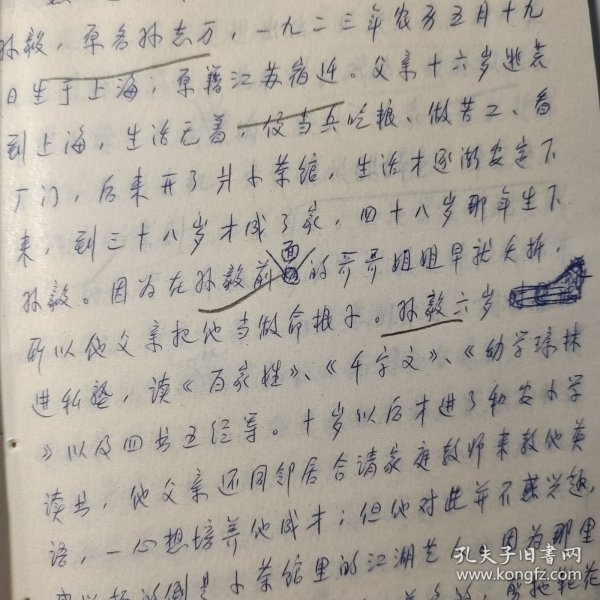 孙毅，原名孙志万，一九二三年农历五月十九
日生于上海，原籍江苏宿迁。父亲十六岁逃荒
到上海，生活无着，便当兵吃粮、做苦工、看
厂门，后来开了爿小茶馆，生活才逐渐安定下
来，到三十八岁才成了家，四十八岁那年生下
孙毅。因为在孙毅前面的哥哥姐姐早就夭折，
所以他父亲把他当做命根子。孙毅六岁
进私塾，读《百家姓》、《千字文》、《幼学琼林
》以及四书五经等。十岁以后才进了和安小学
读书，他父亲还同邻居合请家庭教师来教他英
语，一心想培养他成才；但他对此并不感兴趣，
的倒是小茶馆里的江湖艺人，因为那里
孔夫子旧书网
www.kongfz.com